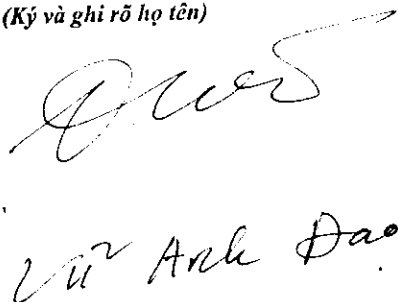 (Ký và ghi rõ họ tên)
Vũ Anh Đạo